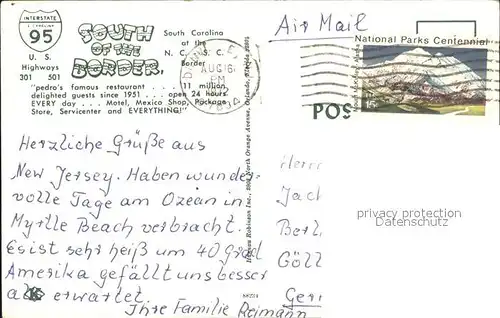 INTERSTATE
95
U. S.
Highways
301 501
SOUTH
OF THE
BORDER,
South Carolina
at the
N. C. - S. C.
Border
"pedro's famous restaurant . . . 11 million
delighted guests since 1951 . . . open 24 hours
EVERY day . . . Motel, Mexico Shop, Package
Store, Servicenter and EVERYTHING!"
Herzliche Grüße aus
New Jersey. Haben wunder-
volle Tage am Ozean in
Myrtle Beach verbracht.
Es ist sehr heiß um 40 Grad
Amerika gefällt uns besser
als erwartet.
Ihre Familie Reimann
AUG 16
PM
Air Mail
National Parks Centennial
15
POS
Herrn
Jach
Berl
Göll
Ger
privacy protection
Dokumentenschutz